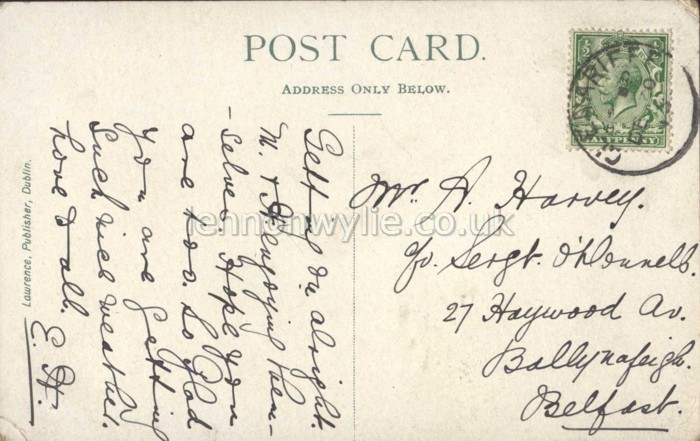 POST CARD.
ADDRESS ONLY BELOW.
HALFPENNY
Getting on alright.
M. & H enjoying them-
selves. Hope you
are too. So glad
you are getting
such nice weather.
Love to all.
E. H.
Lawrence, Publisher, Dublin.
lennonwylie.co.uk
Mr. A. Harvey.
c/o. Sergt. O'Donnell.
27 Haywood Av.
Ballynafeigh.
Belfast.